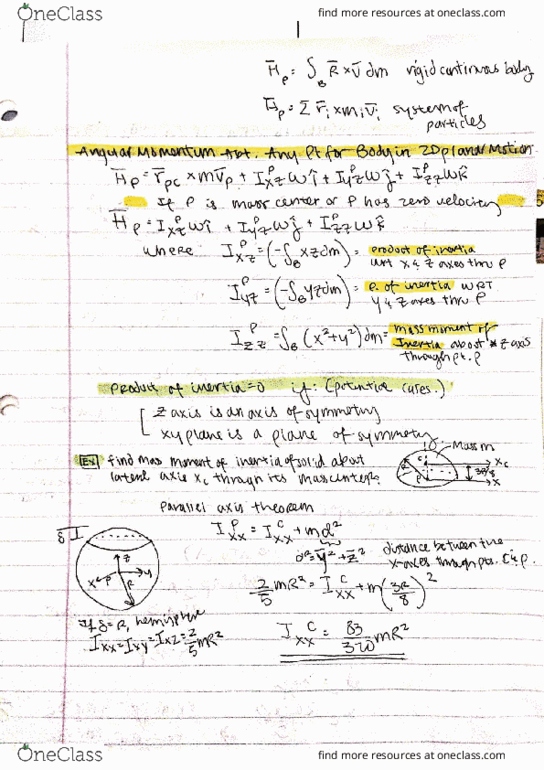 OneClass
find more resources at oneclass.com
H̄_P = ∫_B R̄ × v̄ dm rigid continuous body
H̄_P = Σ r̄_i × m_i v̄_i system of
particles
Angular Momentum Abt. Any Pt for Body in 2D planar Motion
H̄_P = r̄_PC × m v̄_P + I_xz^P ω î + I_yz^P ω ĵ + I_zz^P ω k̂
If P is mass center or P has zero velocity
H̄_P = I_xz^P ω î + I_yz^P ω ĵ + I_zz^P ω k̂
where I_xz^P = (-∫_B xz dm) = product of inertia
wrt x & z axes thru P
I_yz^P = (-∫_B yz dm) = P. of inertia WRT
y & z axes thru P
I_zz^P = ∫_B (x² + y²) dm = mass moment of
Inertia about z axis
through pt. P
product of inertia = 0 if: (potential cases.)
z axis is an axis of symmetry
xy plane is a plane of symmetry
Ex find mass moment of inertia of solid about
lateral axis x_c through its mass center
Mass m
C
x_c
3R/8
R
P
x
Parallel axis theorem
I_xx^P = I_xx^C + md²
d² = ȳ² + z̄²
distance between two
x-axes through pts. C & P.
2/5 mR² = I_xx^C + m(3R/8)²
I_xx^C = 83/320 mR²
δ
z
x
P
R
y
If δ = R, hemisphere
I_xx = I_xy = I_xz = 2/5 mR²
OneClass
find more resources at oneclass.com